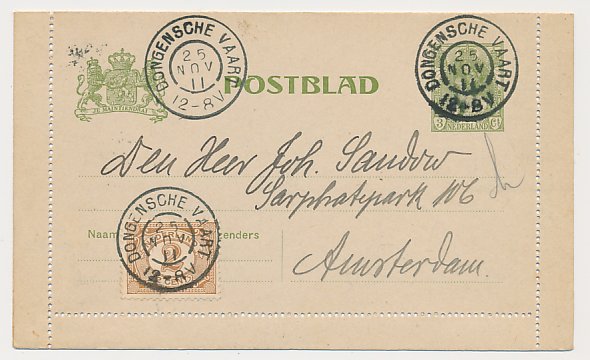 DONGENSCHE VAART
25
NOV
11
12-8V
DONGENSCHE VAART
25
NOV
11
12-8V
JE MAINTIENDRAI
POSTBLAD
3 Ct
NEDERLAND
Den Heer Joh. Sandow
Sarphatipark 106
Naam
enders
DONGENSCHE VAART
25
NOV
11
12-8V
Amsterdam.